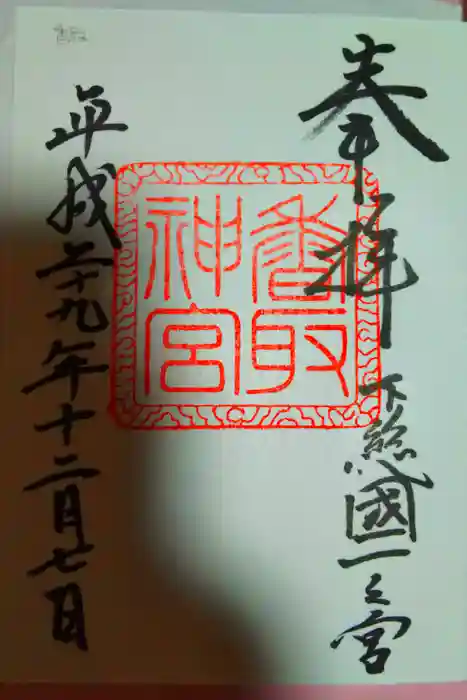 奉拝
下総國一之宮
香取
神宮
平成二十九年十二月廿日
香取